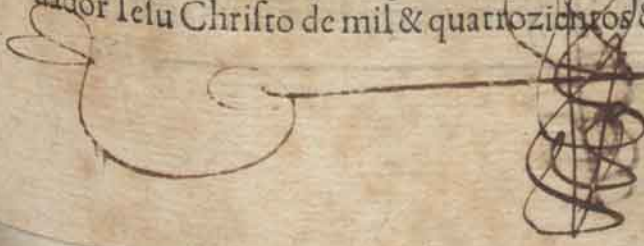 uador Iesu Christo de mil & quatrozientos